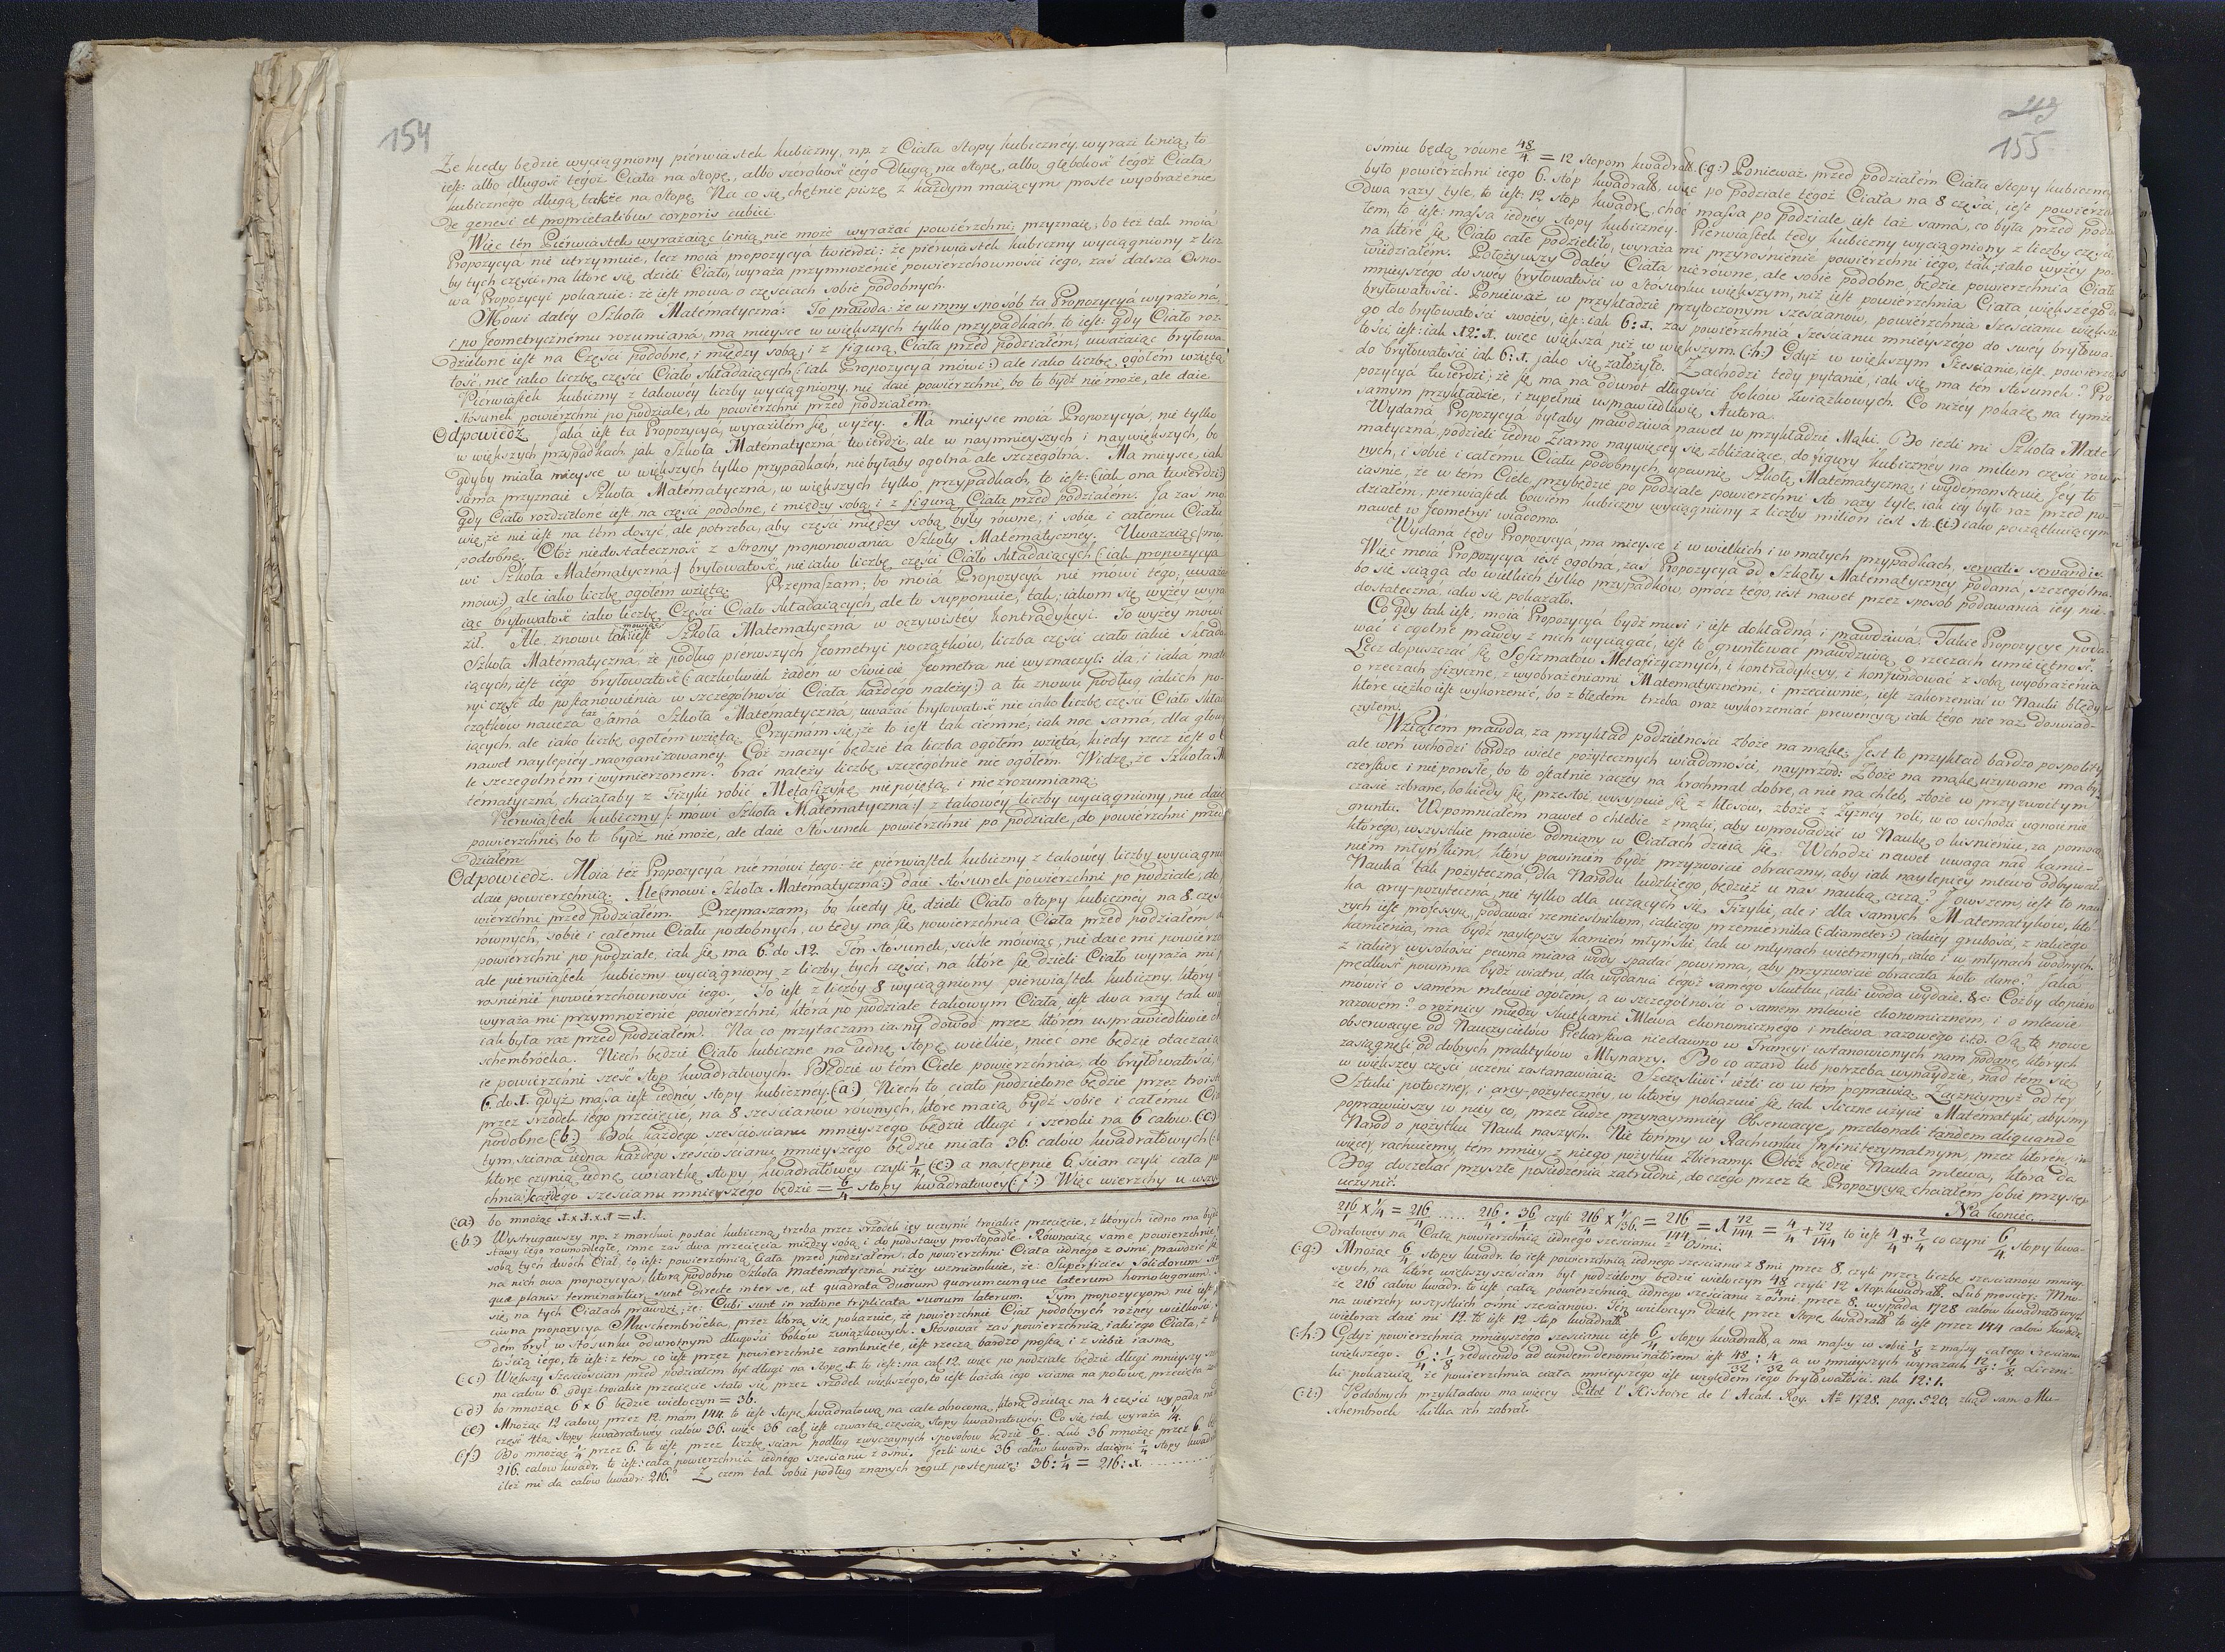 154
Że kiedy będzie wyciągniony piérwiastek kubiczny, np. z Ciała stopy kubicznéy, wyrazi linią, to
iest: albo długość tégoż Ciała na stopę, albo szérokość iégo długą na stopę, albo głębokość tégoż Ciała
kubicznego długą także na stopę. Na co się chętnie piszę z każdym maiącym proste wyobrażenie
De genesi et proprietatibus corporis cubici.
Więc ten Piérwiastek wyrażaiąc linią nie może wyrażać powiérzchni; przyznaię, bo też tak moiá
Propozycyá nie utrzymuie, lecz moiá propozycyá twierdzi: że piérwiastek kubiczny wyciągniony z licz
by tych części, na które się dzieli Ciało, wyraża przymnożenie powiérzchowności iego, zaś dalsza Osno-
wa Propozycyi pokazuie: że iest mowa o częściach sobie podobnych.
Mówi daléy Szkoła Matématyczna: To prawda: że w inny sposób ta Propozycyá wyrażoná
i po Jeometrycznému rozumianá, ma mieysce w większych tylko przypadkach, to iest: gdy Ciało roz-
dzielone iest na Części podobne, i między sobą, i z figurą Ciała przed podziałém, uważaiąc bryłowa-
tość, nie iako liczbę części Ciało składaiących (:iak Propozycyá mówi:) ale iako liczbę ogółem wziętą
Piérwiastek kubiczny z takowéy liczby wyciągniony, nie daie powierzchni, bo to bydź nie może, ale daie
stosunek powierzchni po podziale, do powierzchni przed podziałém.
Odpowiedź. Jaka iest ta Propozycyá, wyraziłém się wyżey. Ma mieysce moiá Propozycyá, nie tylko
w większych przypadkach, jak Szkoła Matématyczna twierdzi, ale w naymnieyszych i naywiększych, bo
gdyby miała mieysce w większych tylko przypadkach, nie byłaby ogólna ale szczególna. Ma mieysce, iak
sama przyznaie Szkoła Matématyczna, w większych tylko przypadkach, to iest: (iak ona twierdzi:)
gdy Ciało rozdzielone iest na części podobne, i między sobą, i z figurą Ciała przed podziałém. Ja zaś mó
wię, że nie iest na tém dosyć, ale potrzeba, aby części między sobą były równe, i sobie i całemu Ciału
podobne. Otóż niedostateczność z strony proponowania Szkoły Matématyczney. Uważaiąc (:mó-
wi Szkoła Matématyczna:) bryłowatość, nie iako liczbę części Ciało składaiących (:iak propozycyá
mówi:) ale iako liczbę ogółem wziętą. Przepraszam; bo moiá Propozycyá nie mówi tego, uważa
iąc bryłowatość iako liczbę Części Ciało składaiących, ale to supponuie, tak; iakom się wyżey wyra
ził. Ale znowu tak mówiąc iest Szkoła Matématyczna w oczywistéy kontradykcyi. To wyżey mówi
Szkoła Matématyczna, że podług pierwszych Jeometryi początków, liczba części ciało iakie składa
iących, iest iégo bryłowatość (:aczkolwiek żadén w Świecie Jeometra nie wyznaczył: ilá, i iaká mate
ryi część do postanowiénia w szczególności Ciała każdego należy:) a tu znowu podług iakich po-
czątków naucza taż Sama Szkoła Matématyczná, uważać bryłowatość nie iako liczbę części Ciało skład
iących, ale iako liczbę ogółem wziętą. Przyznam się, że to iest tak ciemne; iak noc sama, dla głowy
nawet naylepiéy naorganizowanéy. Cóż znaczyć będzie ta liczba ogółem wzięta, kiedy rzecz iest o C
le szczególném i wymierzoném? brać należy liczbę szczególnie nie ogółem. Widzę, że Szkoła M
tématyczna, chciałaby z Fizyki robić Métafizykę niepoiętą, i niezrozumianą.
Piérwiastek kubiczny (:mówi Szkoła Matématyczna:) z takowéy liczby wyciągniony, nie daie
powiérzchni, bo to bydź nie może, ale daie Stosunek powiérzchni po podziale, do powiérzchni przed
działém.
Odpowiedź. Moiá też Propozycyá nie mówi tego: że piérwiastek kubiczny z takowéy liczby wyciągni
daie powierzchnią. Ale (mówi Szkoła Matématyczna:) daie stosunek powiérzchni po podziale, do
wiérzchni przed podziałém. Przepraszam; bo kiedy się dzieli Ciało stopy kubicznéy na 8. częś
równych, sobie i całemu Ciału podobnych, wtedy ma się powierzchnia Ciała przed podziałém d
powierzchni po podziale, iak się ma 6. do 12. Ten stosunek, ściśle mówiąc, nie daie mi powierzc
ale piérwiastek kubiczny wyciągniony z liczby tych części, na które się dzieli Ciało wyraża mi p
rośnienie powiérzchowności iego. To iest z liczby 8 wyciągniony piérwiastek kubiczny, który 
wyraża mi przymnożenie powiérzchni, która po podziale takowym Ciała, iest dwa razy tak wi
iak była raz przed podziałém. Na co przytaczam iasny dowód: przez któren usprawiedliwię
schembroeka. Niech będzie Ciało kubiczne na iednę stopę wielkie, mieć one będzie otaczaią
ie powierzchni sześć stóp kwadratowych. Będzie w tém Ciele powierzchnia, do bryłowatości,
6. do 1. gdyż massa iest iednéy stopy kubicznéy. (:a:) Niech to ciało podzielone będzie przez troist
przez śrzodek iego przecięcie, na 8 sześcianów równych, które maią bydź sobie i całemu Cia
podobne (:b:) Bok każdego sześciościanu mnieyszego będzie długi i szeroki na 6 calów. (:c:)
tym, ściana iedna każdego sześciościanu mnieyszego będzie miała 36. calów kwadratowych (:d
które czynią iednę ćwiartkę stopy kwadratowéy czyli 1/4 (:e:) a następnie 6 ścian czyli cała po
chnia każdego sześcianu mnieyszégo będzie = 6/4 stopy kwadratowéy (:f:) Więc wierzchy u wszys
(:a:) bo mnożąc 1.x.1.x.1=1.
(:b:) Wystrugawszy np. z marchwi postać kubiczną, trzeba przez śrzodek iéy uczynić troiakie przecięcie, z których iedno ma bydź
stawy iego równoodległe, inne zaś dwa przecięcia między sobą i do podstawy prostopadłe. Równaiąc same powierzchnie
sobą tych dwóch Ciał, to iest: powierzchnią Ciała przed podziałém; do powierzchni Ciała iednego z ośmi, prawdzić się
na nich owa propozycya, którą podobno Szkoła Matématyczna niżey wzmiankuie, że: Superficies Solidorum si
quæ planis terminantur, sunt directe inter se, ut quadrata duorum quorumcunque laterum homologorum.
się na tych Ciałach prawdzi; że: Cubi sunt in ratione triplicata suorum laterum. Tym propozycyom nie iest
ciwna propozycya Muschembroeka, przez którą się pokazuie, że powierzchnie Ciał podobnych różnéy wielkości
dem brył w stosunku odwrotnym długości boków związkowych. Stósować zaś powierzchnią iakiego Ciała, z b
tością iego, to iest: z tem co iest przez powierzchnie zamknięte, iest rzeczą bardzo prostą i z siebie iasną.
(:c:) Większy Sześciościan przed podziałem był długi na stopę 1. to iest: na cal 12. więc po podziale będzie długi mnieyszy
na calów 6. gdyż troiakie przecięcie stało się przez śrzodek większego, to iest każda iego ściana na połowę przecięta
(:d:) bo mnożąc 6 x 6 będzie wieloczyn = 36.
(:e:) Mnożąc 12 calów przez 12. mam 144. to iest stopę kwadratową na cale obróconą, którą dzieląc na 4 części wypada na
część 4tą stopy kwadratowéy calów 36. więc 36 cal. iest czwartą częścią stopy kwadratowéy. Co się tak wyraża 1/4.
(:f:) Bo mnożąc 1/4 przez 6. to iest, przez liczbę ścian podług zwyczaynych sposobów będzie 6/4. Lub 36 mnożąc przez 6.
216. calów kwadr. to iest: cała powierzchnia iednégo sześcianu z ośmi. Jeżli więc 36 calów kwadr. daie mi 1/4 stopy kwadr
ileż mi da calów kwadr: 216.? Z czem tak sobie podług znanych reguł postępuię: 36:1/4 = 216:x.
155
ośmiu będą równe 48/4 = 12 stopom kwadratt. (:g:) Ponieważ przed podziałém Ciała stopy kubiczne
było powierzchni iego 6. stóp kwadratt. więc po podziale tégoż Ciała na 8 części, iest powiérzc
Dwa razy tyle, to iest: 12 stóp kwadrt, choć massa po podziale iest taż sama, co była przed podz
łem, to iest: massa iednéy stopy kubicznéy. Piérwiastek tedy kubiczny wyciągniony z liczby części
na które się Ciało całe podzieliło, wyraża mi przyrośnienie powiérzchni iego, tak; iako wyżéy po-
wiedziałem. Położywszy daléy Ciała nierówne, ale sobie podobne, będzie powierzchnia Ciała
mnieyszego do swéy bryłowatości w stosunku większym, niż iest powierzchnia Ciała, większego do
bryłowatości. Ponieważ w przykładzie przytoczonym sześcianów, powierzchnia Sześcianu większe
go do bryłowatości swoiey, iest: iak 6:1, zaś powierzchnia Sześcianu mnieyszego do swéy bryłowa-
tości, iest: iak 12:1, więc większa niż w większym. (:h:) Gdyż w większym Sześcianie, iest, powierzch
do bryłowatości iak 6:1. jako się założyło. Zachodzi tedy pytanie, iak się ma ten stosunek? Pro
pozycya twierdzi; że się ma na odwrót długości boków związkowych. Co niżéy pokażę na tymże
samym przykładzie, i zupełnie usprawiedliwię Autora.
Wydana Propozycyá byłaby prawdziwa nawet w przykładzie Mąki. Bo ieżli mi Szkoła Mate-
matyczna, podzieli iedno Ziarno naywięcéy się zbliżaiące do figury kubicznéy na milion części rów
nych, i sobie i całému Ciału podobnych, upewnię Szkołę Matématyczną, i wydemonstruię Jéy to
iaśnie, że w tém Ciele przybędzie po podziale powierzchni sto razy tyle, iak iéy było raz przed po-
działém, pierwiastek bowiem kubiczny wyciągniony z liczby milion iest sto, (:i:) iako początkuiącym
nawet w Jeometryi wiadomo.
Wydaná tedy Propozycyá, ma mieysce i w wielkich i w małych przypadkach, servatis servandis.
Więc moiá Propozycyá iest ogolna, zaś Propozycya od Szkoły Matématycznéy podaná, szczególna
bo się ściąga do wielkich tylko przypadków, oprócz tego, iest nawet przez sposób podawania iéy nie-
dostateczna, iako się pokazało.
Co gdy tak iest; moiá Propozycyá bydź musi i iest dokładná i prawdziwá. Takie Propozycye poda-
wać i ogólne prawdy z nich wyciągać, iest to gruntować prawdziwą o rzeczach umieiętność.
Lecz dopuszczać się Sofizmatów Metafizycznych, i kontradykcyy, i konfundować z sobą wyobrażénia
o rzeczach fizyczne, z wyobrażeniami Matématycznémi, i przeciwnie, iest zakorzeniać w Nauki błędy,
które ciężko iest wykorzenić, bo z błędem trzeba oraz wykorzeniać prewencyą, iak tégo nie raz doświad-
czyłem.
Wziąłém prawda, za przykład podzielności zboże na mąkę. Jest to przykład bardzo pospolity,
ale weń wchodzi bardzo wiele pożytecznych wiadomości, nayprzód: Zboże na mąkę używane ma być
czerstwe i nie porosłe, bo to ostatnie raczéy na krochmal dobre, a nie na chleb, zboże w przyzwoitym
czasie zebrane, bo kiedy się przestoi, wysypuie się z kłosów, zboże z żyznéy roli, w co wchodzi ugnoienie
gruntu. Wspomniałem nawet o chlebie z mąki, aby wprowadzić w Naukę o kiśnieniu, za pomocą
którego, wszystkie prawie odmiany w Ciałach dzieią się. Wchodzi nawet uwaga nad kamie-
niem młyńskim, który powinien bydź przyzwoicie obracany, aby iak naylepiéy mlewo odbywał
Nauka tak pożyteczna dla Narodu ludzkiego, będzież u nas nauką czczą? I owszem, iest to nau
ka arcy-pożyteczna, nie tylko dla uczących się Fizyki, ale i dla samych Matématyków, któ
rych iest professyą, podawać rzemieślnikom, iakiego przemiernika (:diameter:) iakiéy grubości, z iakiego
kamienia, ma bydź naylepszy kamień młyński, tak w młynach wietrznych, iako i w młynach wodnych.
z iakiéy wysokości pewná miara wody spadać powinna, aby przyzwoicie obracała koło dane? Jaka
prędkość powinna bydź wiatru, dla wydania tégoż samego skutku, iaki woda wydaie, &c: Cóżby dopiero
mówić o samem mlewie ogółem, a w szczególności o samem mlewie ekonomicznem, i o mlewie
razowem? o różnicy między skutkami Mlewa ekonomicznego i mlewa razowego itd. Są to nowe
obserwacye od Nauczycielów Piekarstwa niedawno w Francyi ustanowionych nam podane, których
zasiągnęli od dobrych praktyków Młynarzy. Bo co azard lub potrzeba wynaydzie, nad tem się
w większéy części uczeni zastanawiaią. Szczęśliwi! ieżli co w tem poprawią. Zacznijmyż od téy
Sztuki potocznéy, i arcy-pożytecznéy, w którey pokazuie się tak śliczne użycie Matématyki, abyśmy
poprawiwszy w niéy co, przez ludzie przynaymniéy Obserwacye, przekonali tandem aliquando
Naród o pożytku Nauk naszych. Nie tońmy w Rachunku Infinitezymalnym, przez któren, im
więcéy rachuiemy, tém mniéy z niego pożytku zbieramy. Otóż będzie Nauka mlewa, która da
Bóg doczekać przyszłe posiedzenia zatrudni, do czégo przez tę Propozycyą chciałém sobie przystęp
uczynić.
Na koniec
216 x 1/4 = 216/4 ...... 216/4 : 36/1 czyli 216/4 x 1/36. = 216/144 = 1 72/144 = 4/4 + 72/144 to iest 4/4 + 2/4 co czyni 6/4 stopy kwa-
dratowey na Całą powierzchnią iednego sześcianu z Ośmi.
(:g:) Mnożąc 6/4 stopy kwadr. to iest powierzchnią iednego sześcianu z 8mi przez 8. czyli przez liczbę sześcianów mniey-
szych, na które większy sześcian był podzielony będzie wieloczyn 48/4 czyli 12 Stop. kwadratt. Lub prościéy: Mno-
żę 216 calów kwadr. to iest całą powierzchnią iednego sześcianu z ośmi przez 8. wypada 1728 calów kwadratowych
na wierzchy wszystkich ośmi sześcianów. Ten wieloczyn dzielę przez stopę kwadratt. to iest przez 144 calów kwadr.
wieloraz daie mi 12. to iest 12 stóp kwadratt.
(:h:) Gdyż powierzchnia mnieyszego sześcianu iest 6/4 stopy kwadratt, a ma massy w sobie 1/8 z massy całego sześcianu
większego. 6/4 : 1/8 reducendo ad eundem denominatorem iest 48/32 : 4/32 a w mnieyszych wyrazach 12/8 : 1/8. Liczni-
ki pokazuią, że powierzchnia ciała mnieyszego iest względem iego bryłowatości. iak 12:1.
(:i:) Podobnych przykładów ma więcéy Pitot l'Histoire de l'Acad. Roy. Ao 1728. pag. 520. zkąd sam Mu-
schembroek kilka ich zabrał.